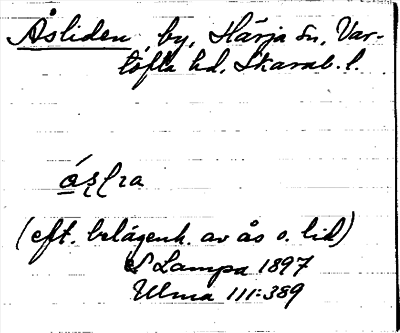 Åsliden by, Härja sn, Var-
tofta hd, Skarab. l.
(eft. belägenh. av ås o. lid)
S Lampa 1897
Ulma 111:389